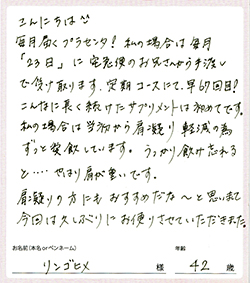 こんにちは
毎月届くプラセンタ！私の場合は毎月
「23日」に宅急便のお兄さんから手渡し
で受け取ります。定期コースにて、早67回目！
こんなに長く続けたサプリメントは初めてです。
私の場合は当初から肩凝り軽減の為
ずっと愛飲しています。うっかり飲み忘れる
と…やはり肩が重いです。
肩凝りの方にもおすすめだな〜と思いまして
今回は久しぶりにお便りさせていただきました。
お名前(本名orペンネーム)　年齢
リンゴヒメ 様 42 歳